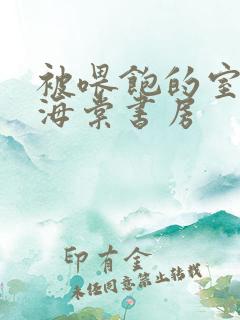 被喂饱的室
海棠书房
印有金
未经同意禁止转载